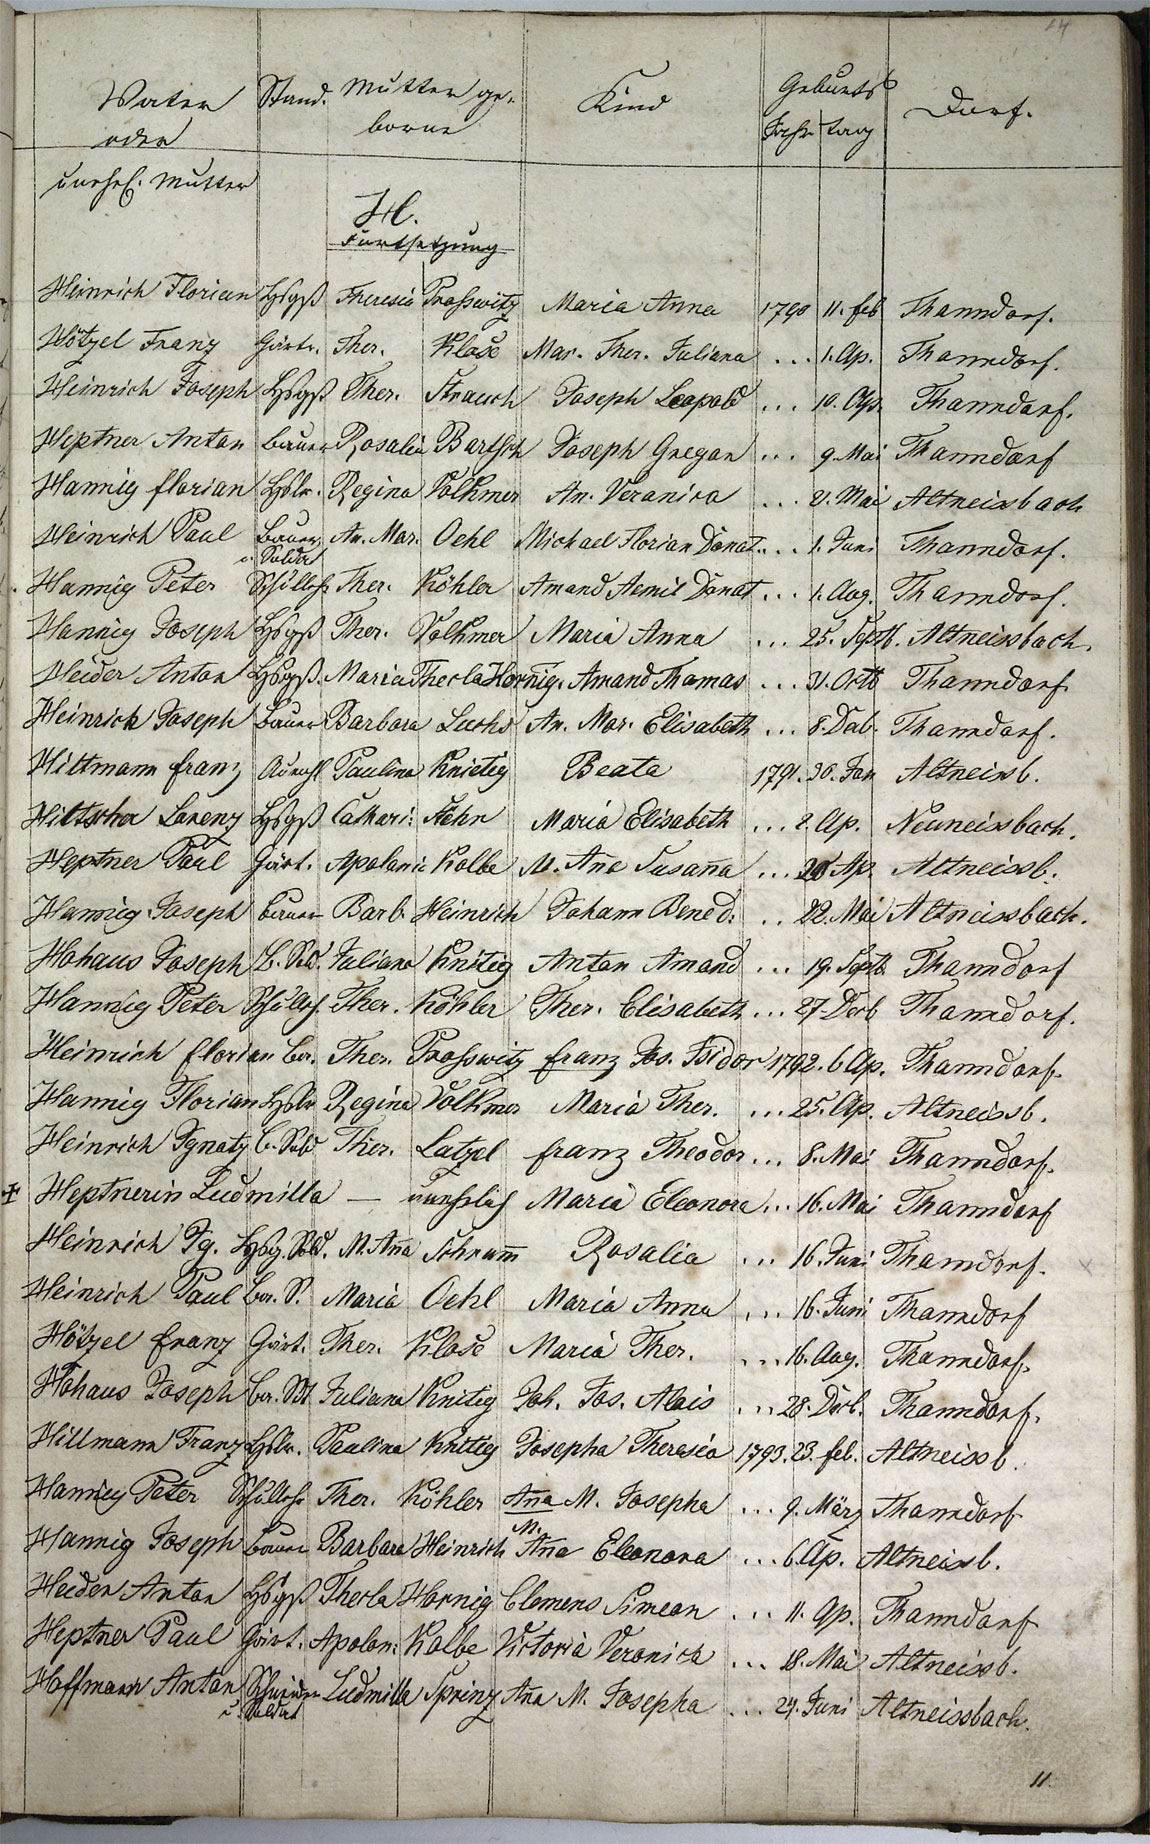 Vater oder unehel. Mutter Stand. Mutter geborne Kind Geburts Jahr tag Dorf.
H.
Fortsetzung
Heinrich Florian Hsgß Theresia Prosswitz Maria Anna 1790 11. feb Thanndorf.
Hötzel Franz Gärtr. Ther. Klose Mar. Ther. Juliana ... 1. Ap. Thanndorf.
Heinrich Joseph Hsgß Ther. Strauch Joseph Leopold ... 10. Ap. Thanndorf.
Heptner Anton bauer Rosalia Bartsch Joseph Gregor ... 9. Mai Thanndorf
Hannig florian Hslr. Regina Volkmer An. Veronica ... 21. Mai Altneissbach
Heinrich Paul Bauer u. Soldat An. Mar. Oehl Michael Florian Donat ... 1. Juni Thanndorf.
Hannig Peter Schullehr Ther. Köhler Amand Aemil Donat ... 1. Aug. Thanndorf.
Hannig Joseph Hsgß Ther. Volkmer Maria Anna ... 25. Septb. Altneissbach.
Heider Anton Hsgß. Maria Thecla Hornig. Amand Thomas ... 31. Octb Thanndorf
Heinrich Joseph bauer Barbara Luchs An. Mar. Elisabeth ... 8. Deb. Thanndorf.
Hittmann franz Paulina Knietig Beata 1791. 30. Jan Altneissb.
Hiltscher Lorenz Hsgß Cathari: Hehn Maria Elisabeth ... 2. Ap. Neuneissbach.
Heptner Paul Gärt. Apolonia Kolbe M. Ana Susana ... 20 Ap. Altneissb.
Hannig Joseph bauer Barb. Heinrich Johann Bened: .. 22. Mai Altneissbach.
Hohaus Joseph B. Sold. Juliana Knitig Anton Amand ... 19. Septb Thanndorf
Hannig Peter Schullehr. Ther. Köhler Ther. Elisabeth ... 27. Decb Thanndorf.
Heinrich florian br. Ther. Prosswitz franz Jos. Isidor 1792. 6 Ap. Thanndorf.
Hannig Florian Hslr Regina Volkmer Maria Ther. ... 25. Ap. Altneissb.
Heinrich Ignatz b. Sold Ther. Latzel franz Theodor ... 8. Mai Thanndorf.
Heptnerin Ludmilla — unehelich Maria Eleonora ... 16. Mai Thanndorf
Heinrich Ig. Hsg. Sold. M. Ana Schramm Rosalia ... 16. Juni Thanndorf.
Heinrich Paul br. S. Maria Oehl Maria Anna ... 16. Juni Thanndorf
Hötzel franz Gärt. Ther. Klose Maria Ther. ... 16. Aug. Thanndorf.
Hohaus Joseph br. Slt. Juliana Knitig Joh. Jos. Alois ... 28. Decb. Thanndorf.
Hillmann Franz Hslr. Paulina Knitig Josepha Theresia 1793. 23. feb. Altneissb.
Hannig Peter Schullehr Ther. Köhler Ana M. Josepha ... 9. März Thanndorf
Hannig Joseph bauer Barbara Heinrich M. Ana Eleonora ... 6. Ap. Altneissb.
Heider Anton Hsgß Thecla Hornig Clemens Simeon ... 11. Ap. Thanndorf
Heptner Paul Gärt. Apolon: Kolbe Victoria Veronica ... 18. Mai Altneissb.
Hoffmann Anton Schneider u. Soldat Ludmilla Sprinz Ana M. Josepha ... 24. Juni Altneissbach.
11.